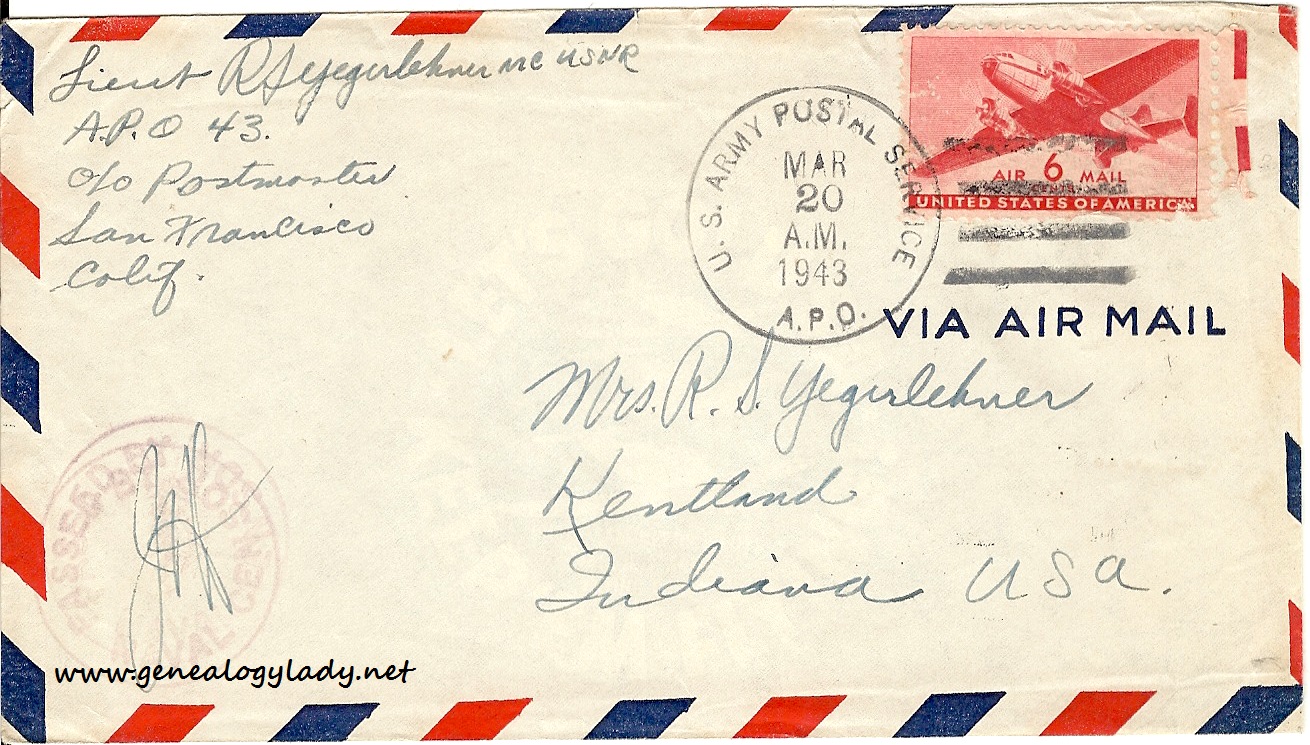 Lieut R S Yegerlehner MC USNR
A.P.O 43.
c/o Postmaster
San Francisco
Calif.
U.S. ARMY POSTAL SERVICE
MAR
20
A.M.
1943
A.P.O.
AIR 6 MAIL
CENTS
UNITED STATES OF AMERICA
VIA AIR MAIL
Mrs. R. S. Yegerlehner
Kentland
Indiana USA.
PASSED BY
NAVAL CEN
www.genealogylady.net